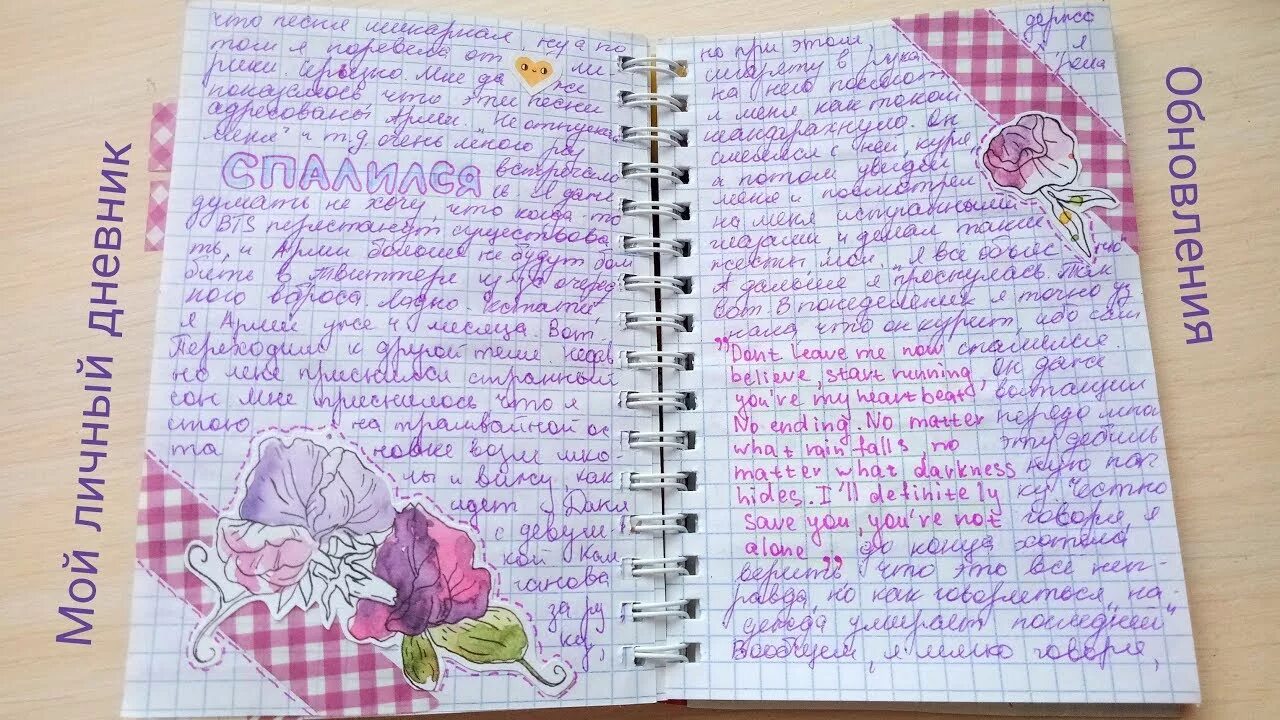 Мой личный дневник
что песня шикарная ну а по
том я перевела от ли
рики. Серьезно. Мне да же
показалось что эти песни
адресованы Арми. "Не отпускай
меня" и т.д очень много раз
СПАЛИЛСЯ встречалось
я И даже
думать не хочу, что когда-то
BTS перестанут существова
ть, и Арми больше не будут бом
бить в твиттере из-за очеред
ного вброса. Ладно. Кстати,
я Арми уже 4 месяца. Вот.
Переходим к другой теме. Недав
но мне приснился странный
сон. Мне приснилось что я
стою на трамвайной ос
та новке возле шко
лы и вижу как
идет Дани
с девуш
кой Кам
чанова
за ру
ку,
но при этом, держа
сигарету в руках. Я
на него посмот рела
и меня как током
шандарахнуло. Он
смеялся с ней, курил,
а потом увидел
меня и посмотрел
на меня испуганными
глазами, и делал такие
жесты мол "я все объясню"
А дальше я проснулась. Так
вот. В понедельник я точно уз
нала, что он курит, ибо
"Dont leave me now спалился.
believe, start running, он даже
you're my heart beat
No ending. No matter передо мной
what rain falls no эту
matter what darkness пач
hides. I'll definitely ку честно
save you, you're not говоря, я
alone" до конца хотела
верить что это все неп-
равда, но как говориться, "на-
дежда умирает последней"
Вообщем, я мягко говоря,
Обновления